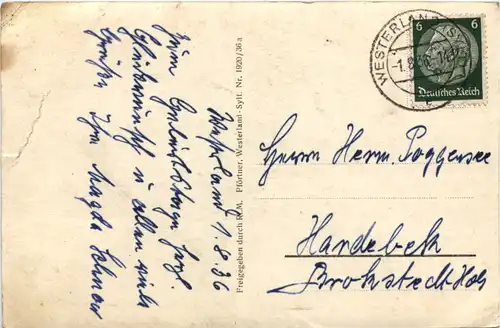 Westerland 1.8.36
Zum Geburtstage herzl.
Glückwunsch u allen viele
Grüße Ihre Magda Lohner
Freigegeben durch RLM. Pförtner, Westerland-Sylt. Nr. 1920/36a
WESTERLAND (SYLT)
-1.8.36
6 6
Deutsches Reich
Herrn Herm. Poggensee
Hardebek
Brokstedt Hols